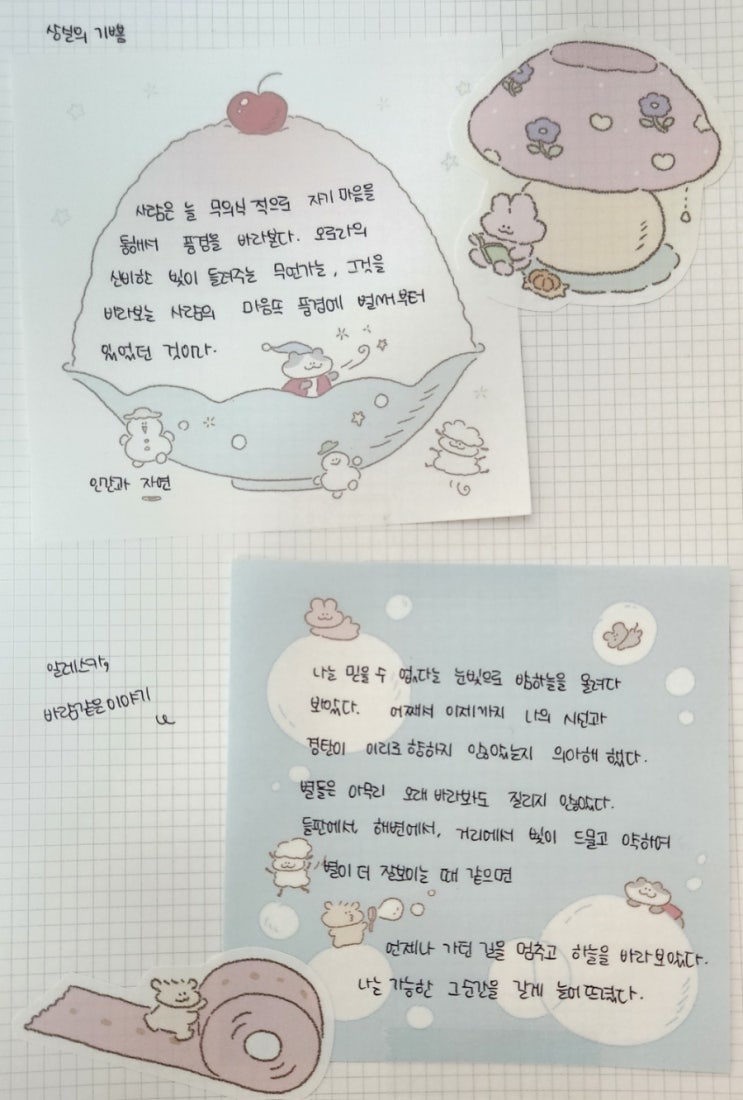 상실의 기쁨
사람은 늘 무의식 적으로 자기 마음을
통해서 풍경을 바라본다. 오로라의
신비한 빛이 들려주는 무언가는, 그것을
바라보는 사람의 마음또 풍경에 벌써부터
있었던 것이다.
인간과 자연
알레스카,
바람같은 이야기
나는 믿을 수 없다는 눈빛으로 밤하늘을 올려다
보았다. 어째서 이제까지 나의 시선과
경탄이 이리로 향하지 않았는지 의아해 했다.
별들은 아무리 오래 바라봐도 질리지 않았다.
들판에서, 해변에서, 거리에서 빛이 드물고 약하여
별이 더 잘보이는 때 같으면
언제나 가던 길을 멈추고 하늘을 바라보았다.
나는 가능한 그순간을 길게 늘어뜨렸다.